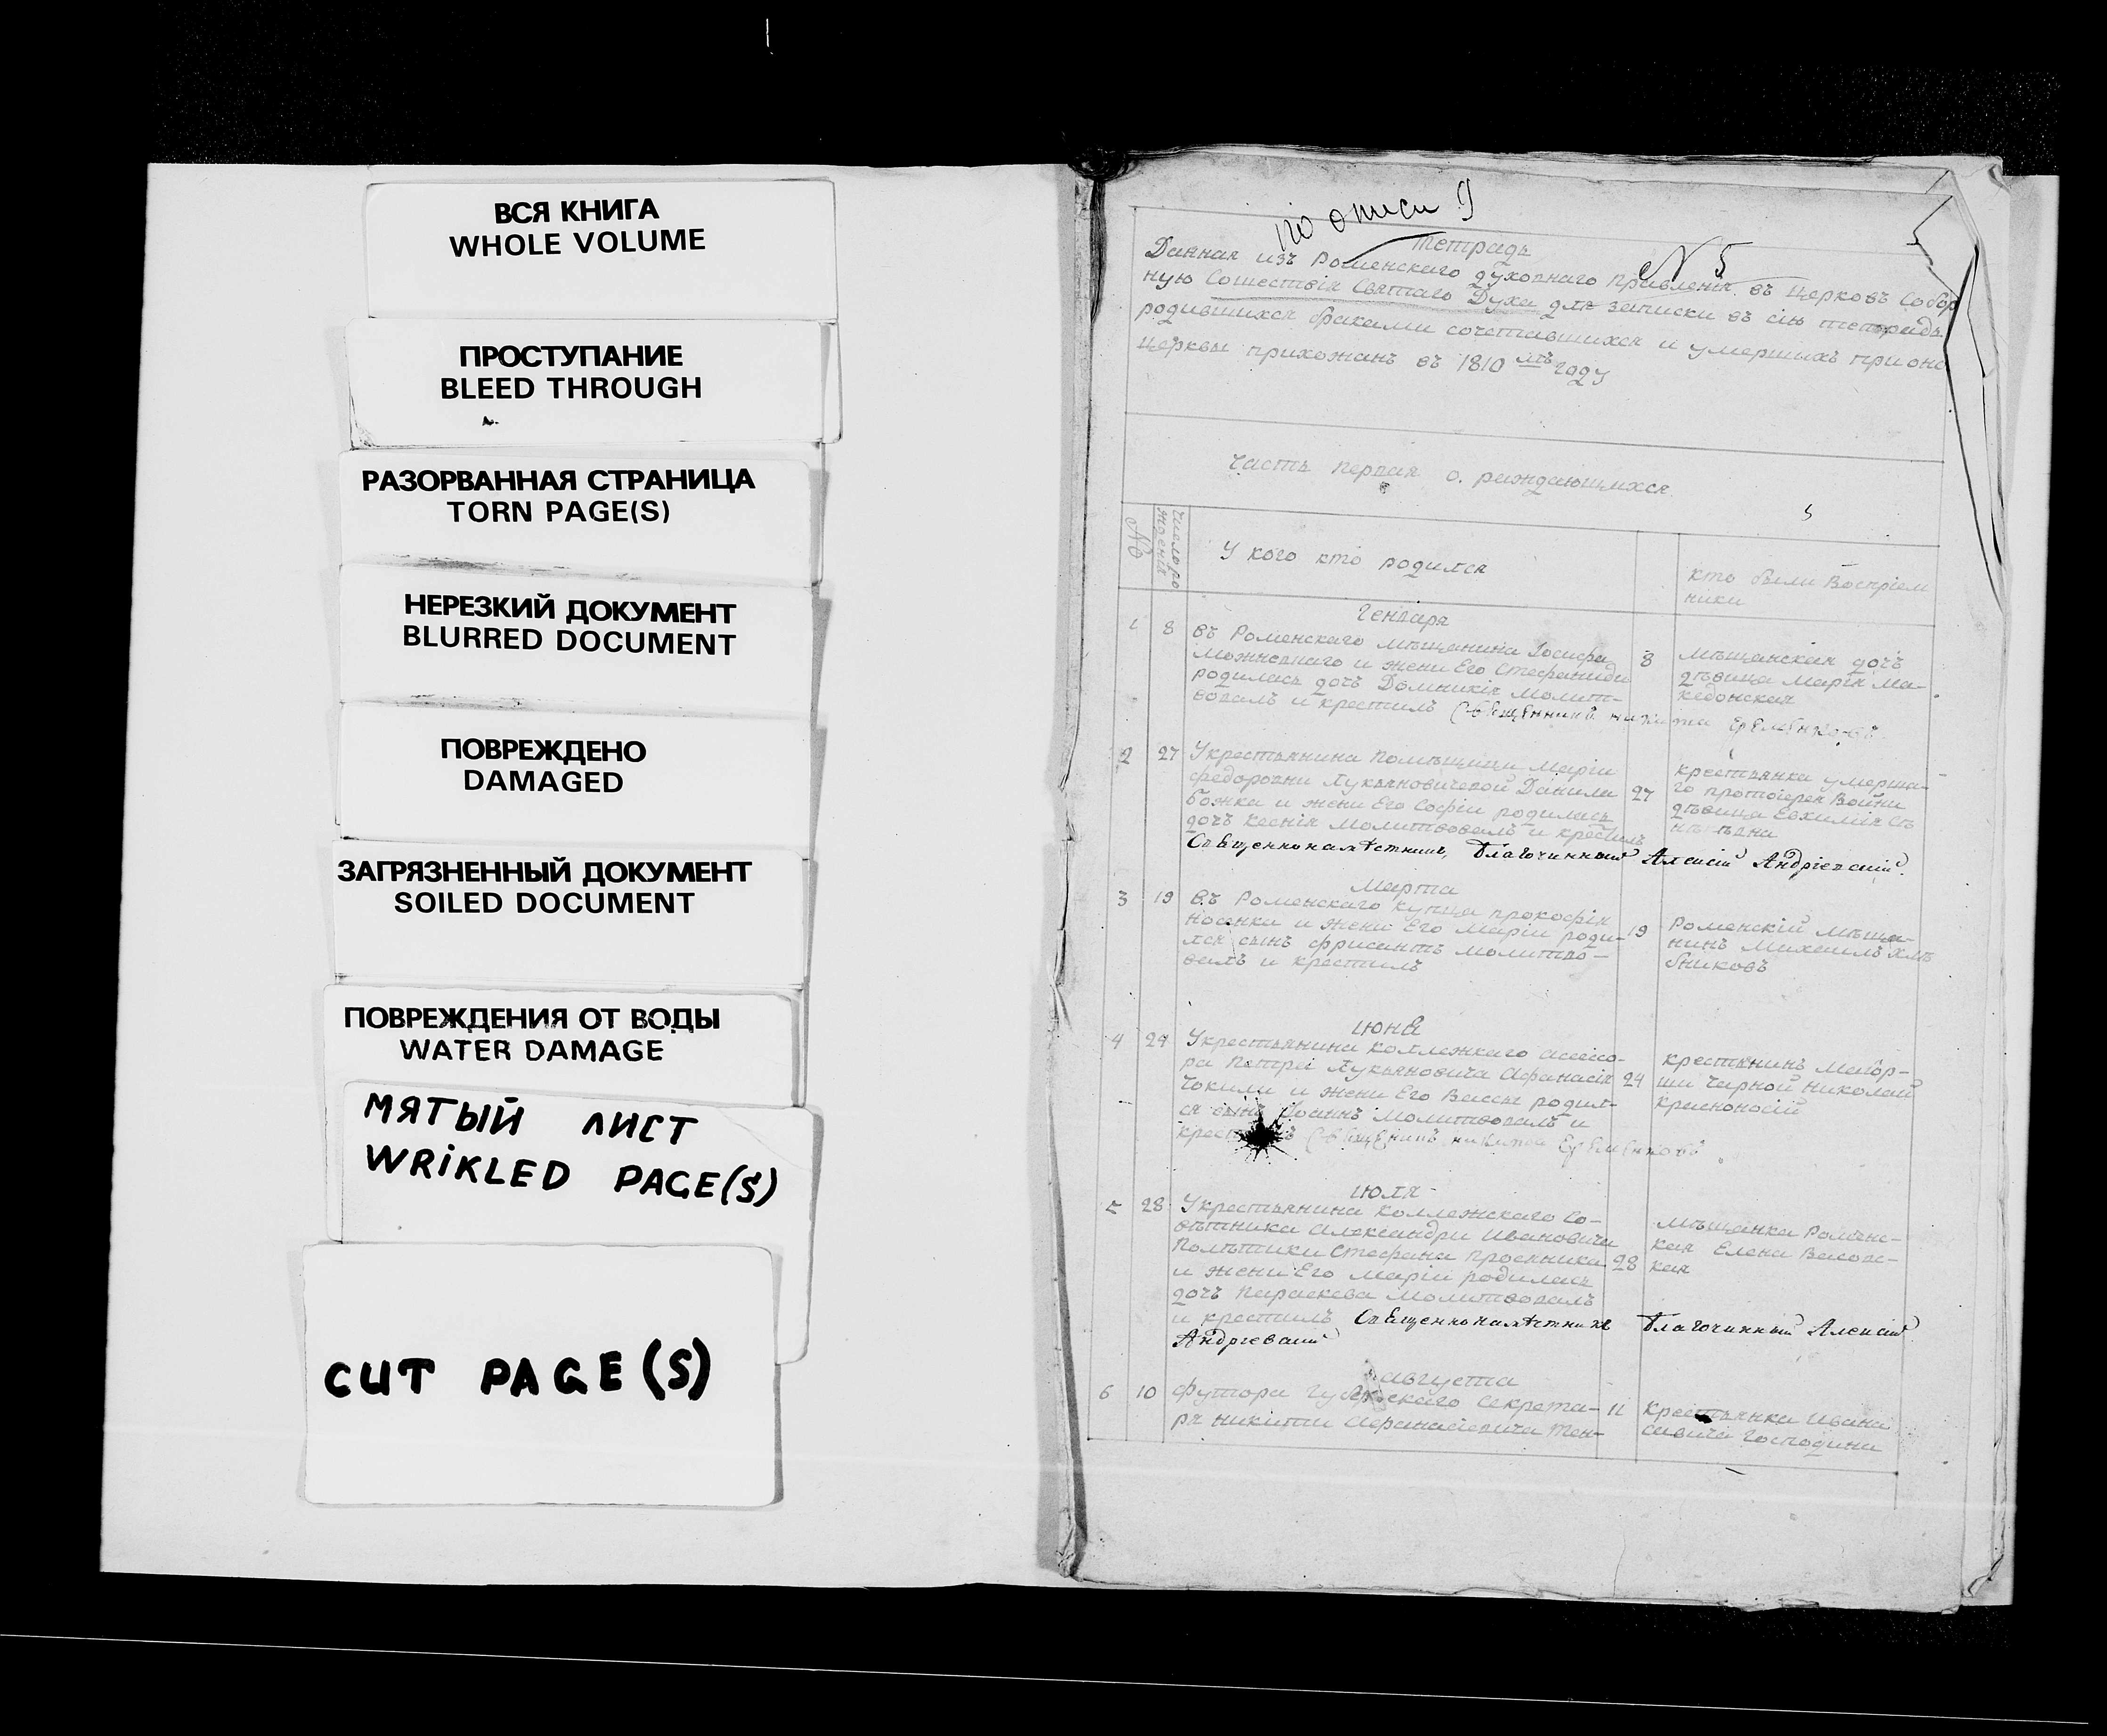 ВСЯ КНИГА
WHOLE VOLUME
ПРОСТУПАНИЕ
BLEED THROUGH
РАЗОРВАННАЯ СТРАНИЦА
TORN PAGE(S)
НЕРЕЗКИЙ ДОКУМЕНТ
BLURRED DOCUMENT
ПОВРЕЖДЕНО
DAMAGED
ЗАГРЯЗНЕННЫЙ ДОКУМЕНТ
SOILED DOCUMENT
ПОВРЕЖДЕНИЯ ОТ ВОДЫ
WATER DAMAGE
МЯТЫЙ ЛИСТ
WRiKLED PAGE(S)
CUT PAGE(S)
по описи 9
Тетрадь
№ 5
Данная изъ Роменскаго духовнаго правленія въ церковъ Собор
ную Сошествія Святаго Духа для записки въ сію тетрадь
родившихся браками сочетавшихся и умершихъ при оно
церквы прихожанъ въ 1810 мъ году
Часть первая о раждающихся
№
Число ро
жденія
У кого кто родился
кто были Воспріем
ники
Генваря
1 8 въ Роменскаго мѣщанина Іосифа
и жени Его Стефаниди
родилась дочь Домникія молит-
вовалъ и крестилъ Священникъ никита Еременковъ
8 мѣщанская дочъ
дѣвица Марія Ма-
кедонская
2 27 Укрестьянина Помѣщици Маріи
федоровни Лукьяновичевой Данила
божка и жени Его Софіи родилась
дочъ Ксенія молитвовалъ и крестилъ
Священнонамѣстникъ, Благочинный Алексій Андріевскій
27 крестьянка умерша-
го протоіерея Войни
дѣвица Евхимія
Марта
3 19 въ Роменскаго купца прокофія
носенка и жени Его Маріи роди-
лся сынъ молитво-
валъ и крестилъ
19 Роменскій мѣща-
нинъ Михаилъ Хлѣ
бниковъ
июня
4 24 Укрестьянина коллежкаго асессо-
ра Петра Лукьяновича Афанасія
и жени Его Вассы родил-
ся сынъ Іоаннъ молитвовалъ и
Священникъ никита Еременковъ
24 крестянинъ Маіор-
ши Чарной николай
красноносій
июля
5 28 Укрестьянина коллежскаго Со-
вѣтника Александри Ивановича
Полѣтики Стефана
и жени Его Маріи родилась
дочъ Параскева молитвовалъ
и крестилъ Священнонамѣстникъ Благочинный Алексій
Андріевскій
28 мѣщанка Роменс-
кая Елена
кая
августа
6 10 футора Губернскаго Секрета-
ря никити Афанасіевича
11 крестьянка Ивана
савича Господини